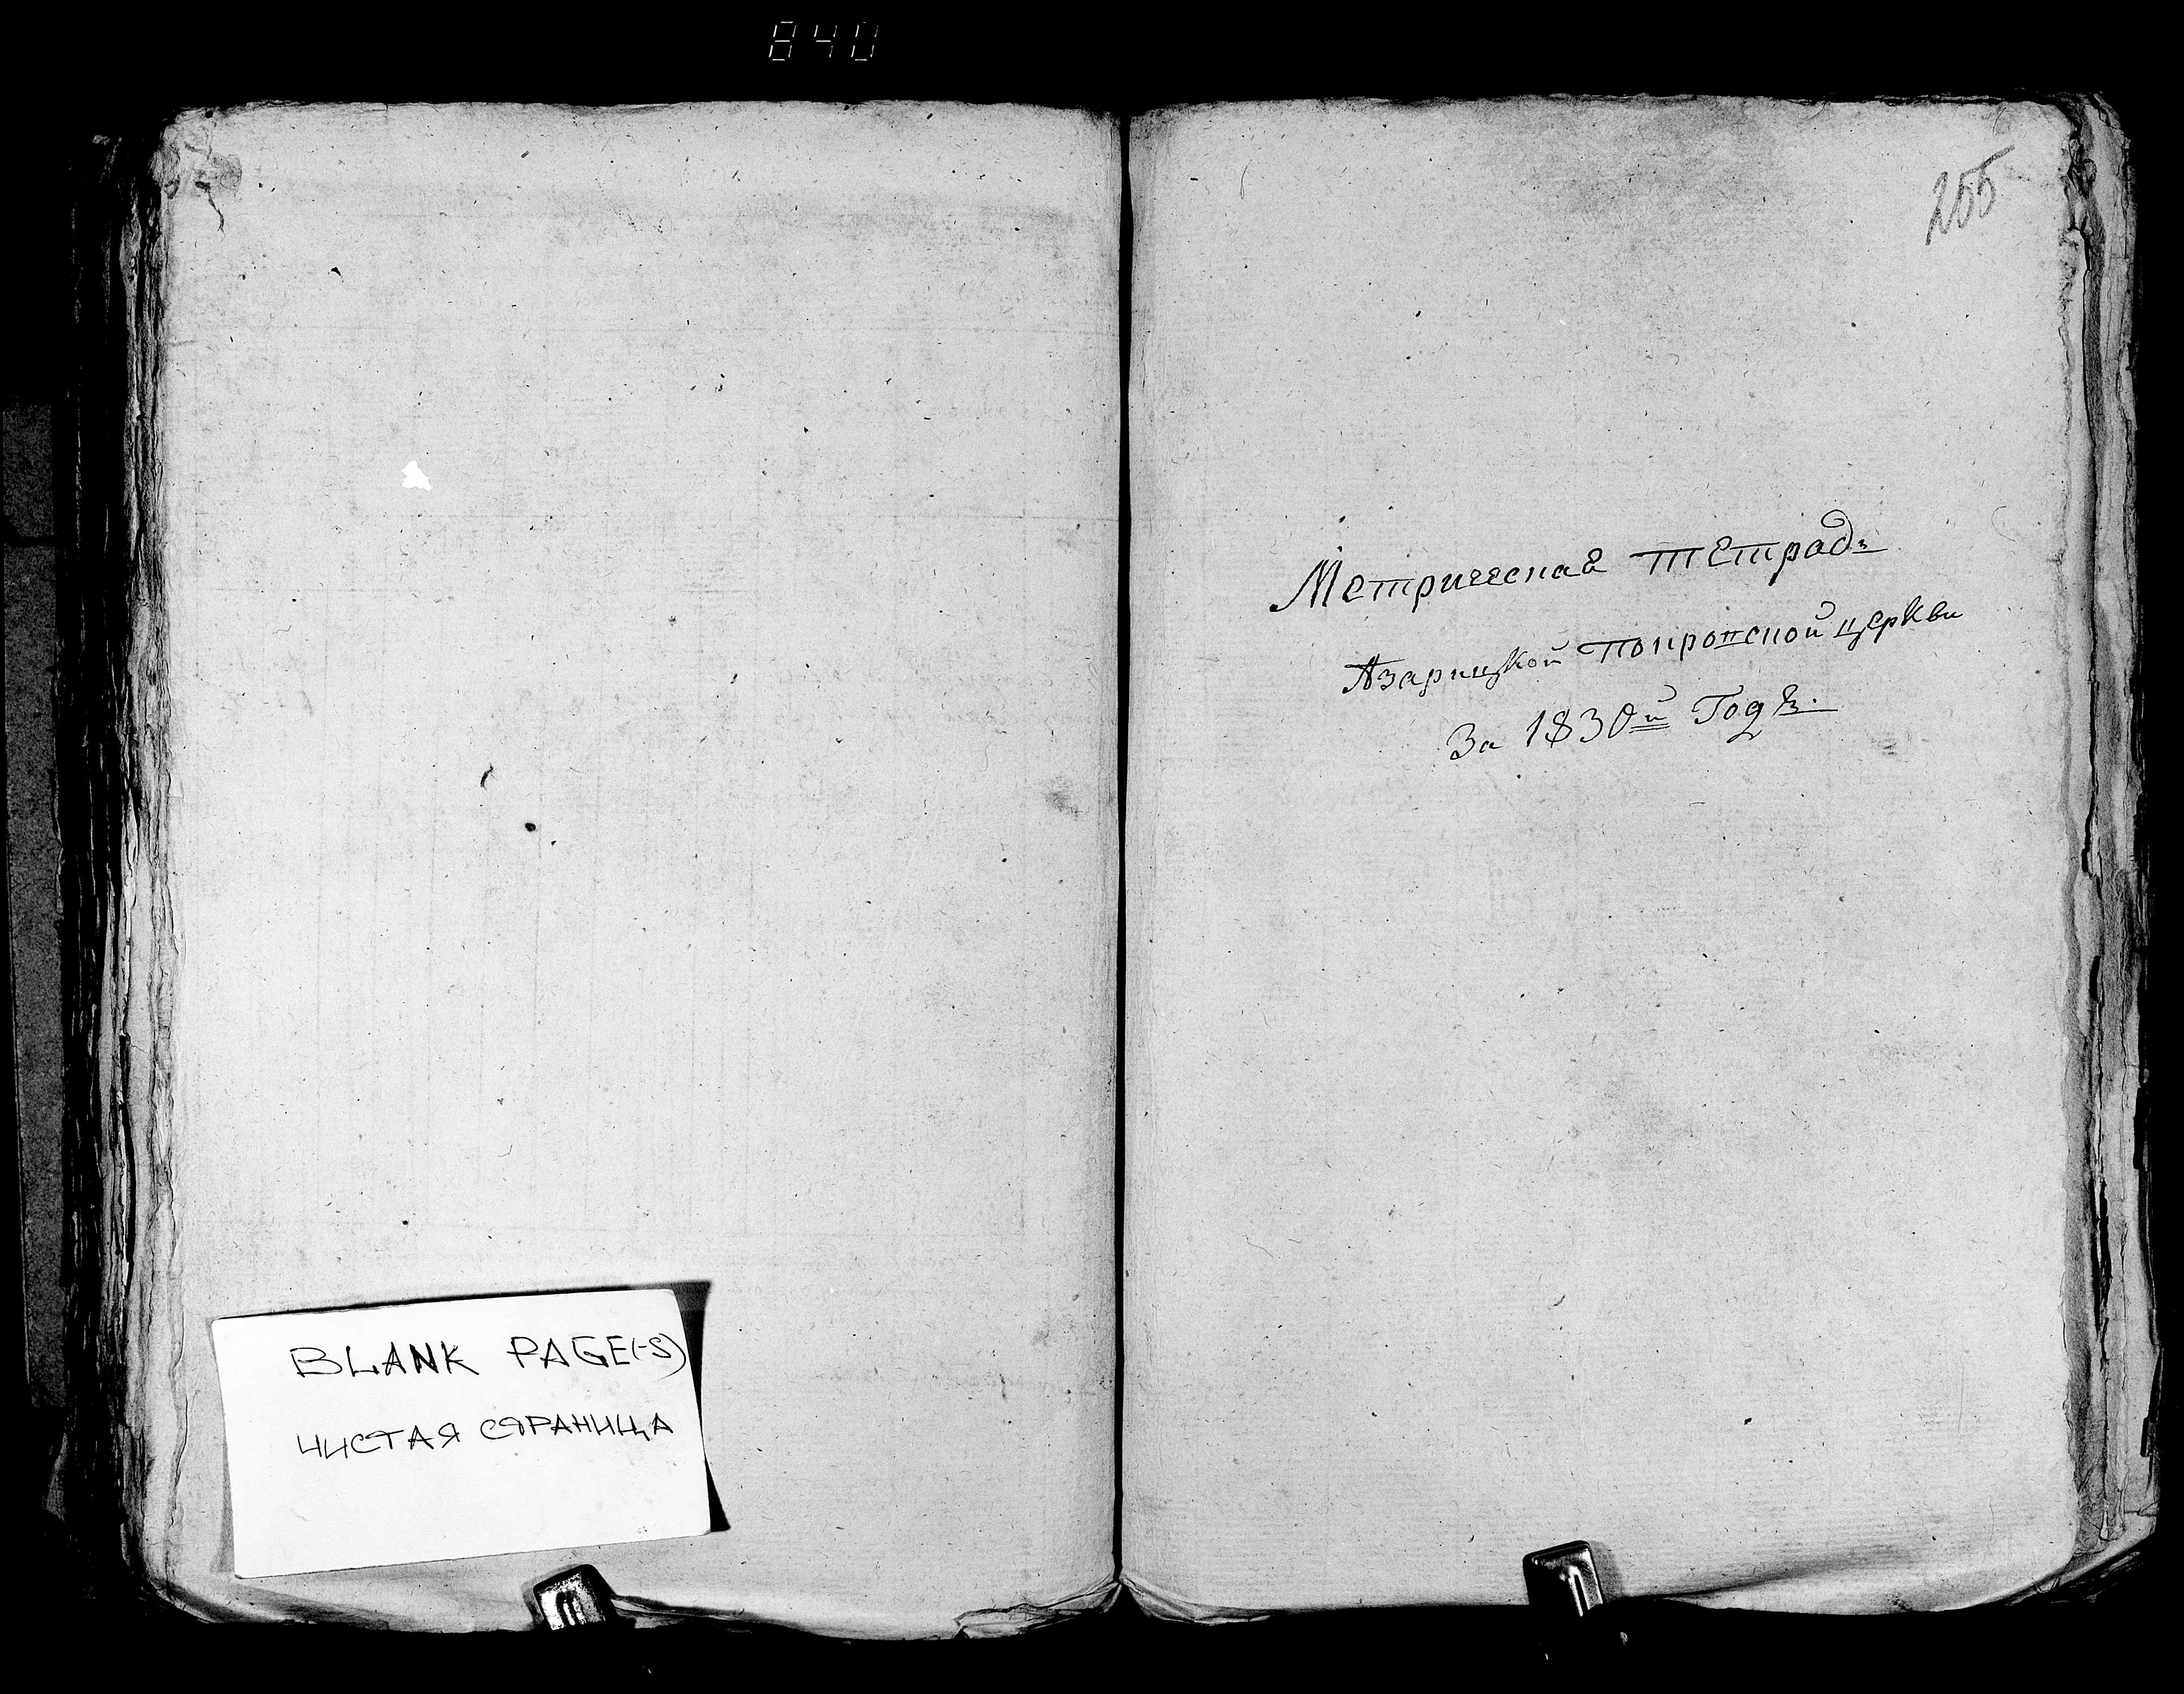 840
BLANK PAGE(-S)
ЧИСТАЯ СТРАНИЦА
255
Метрическая тетрадь
Азарицкой Покровской церкви
За 1830й Годъ.